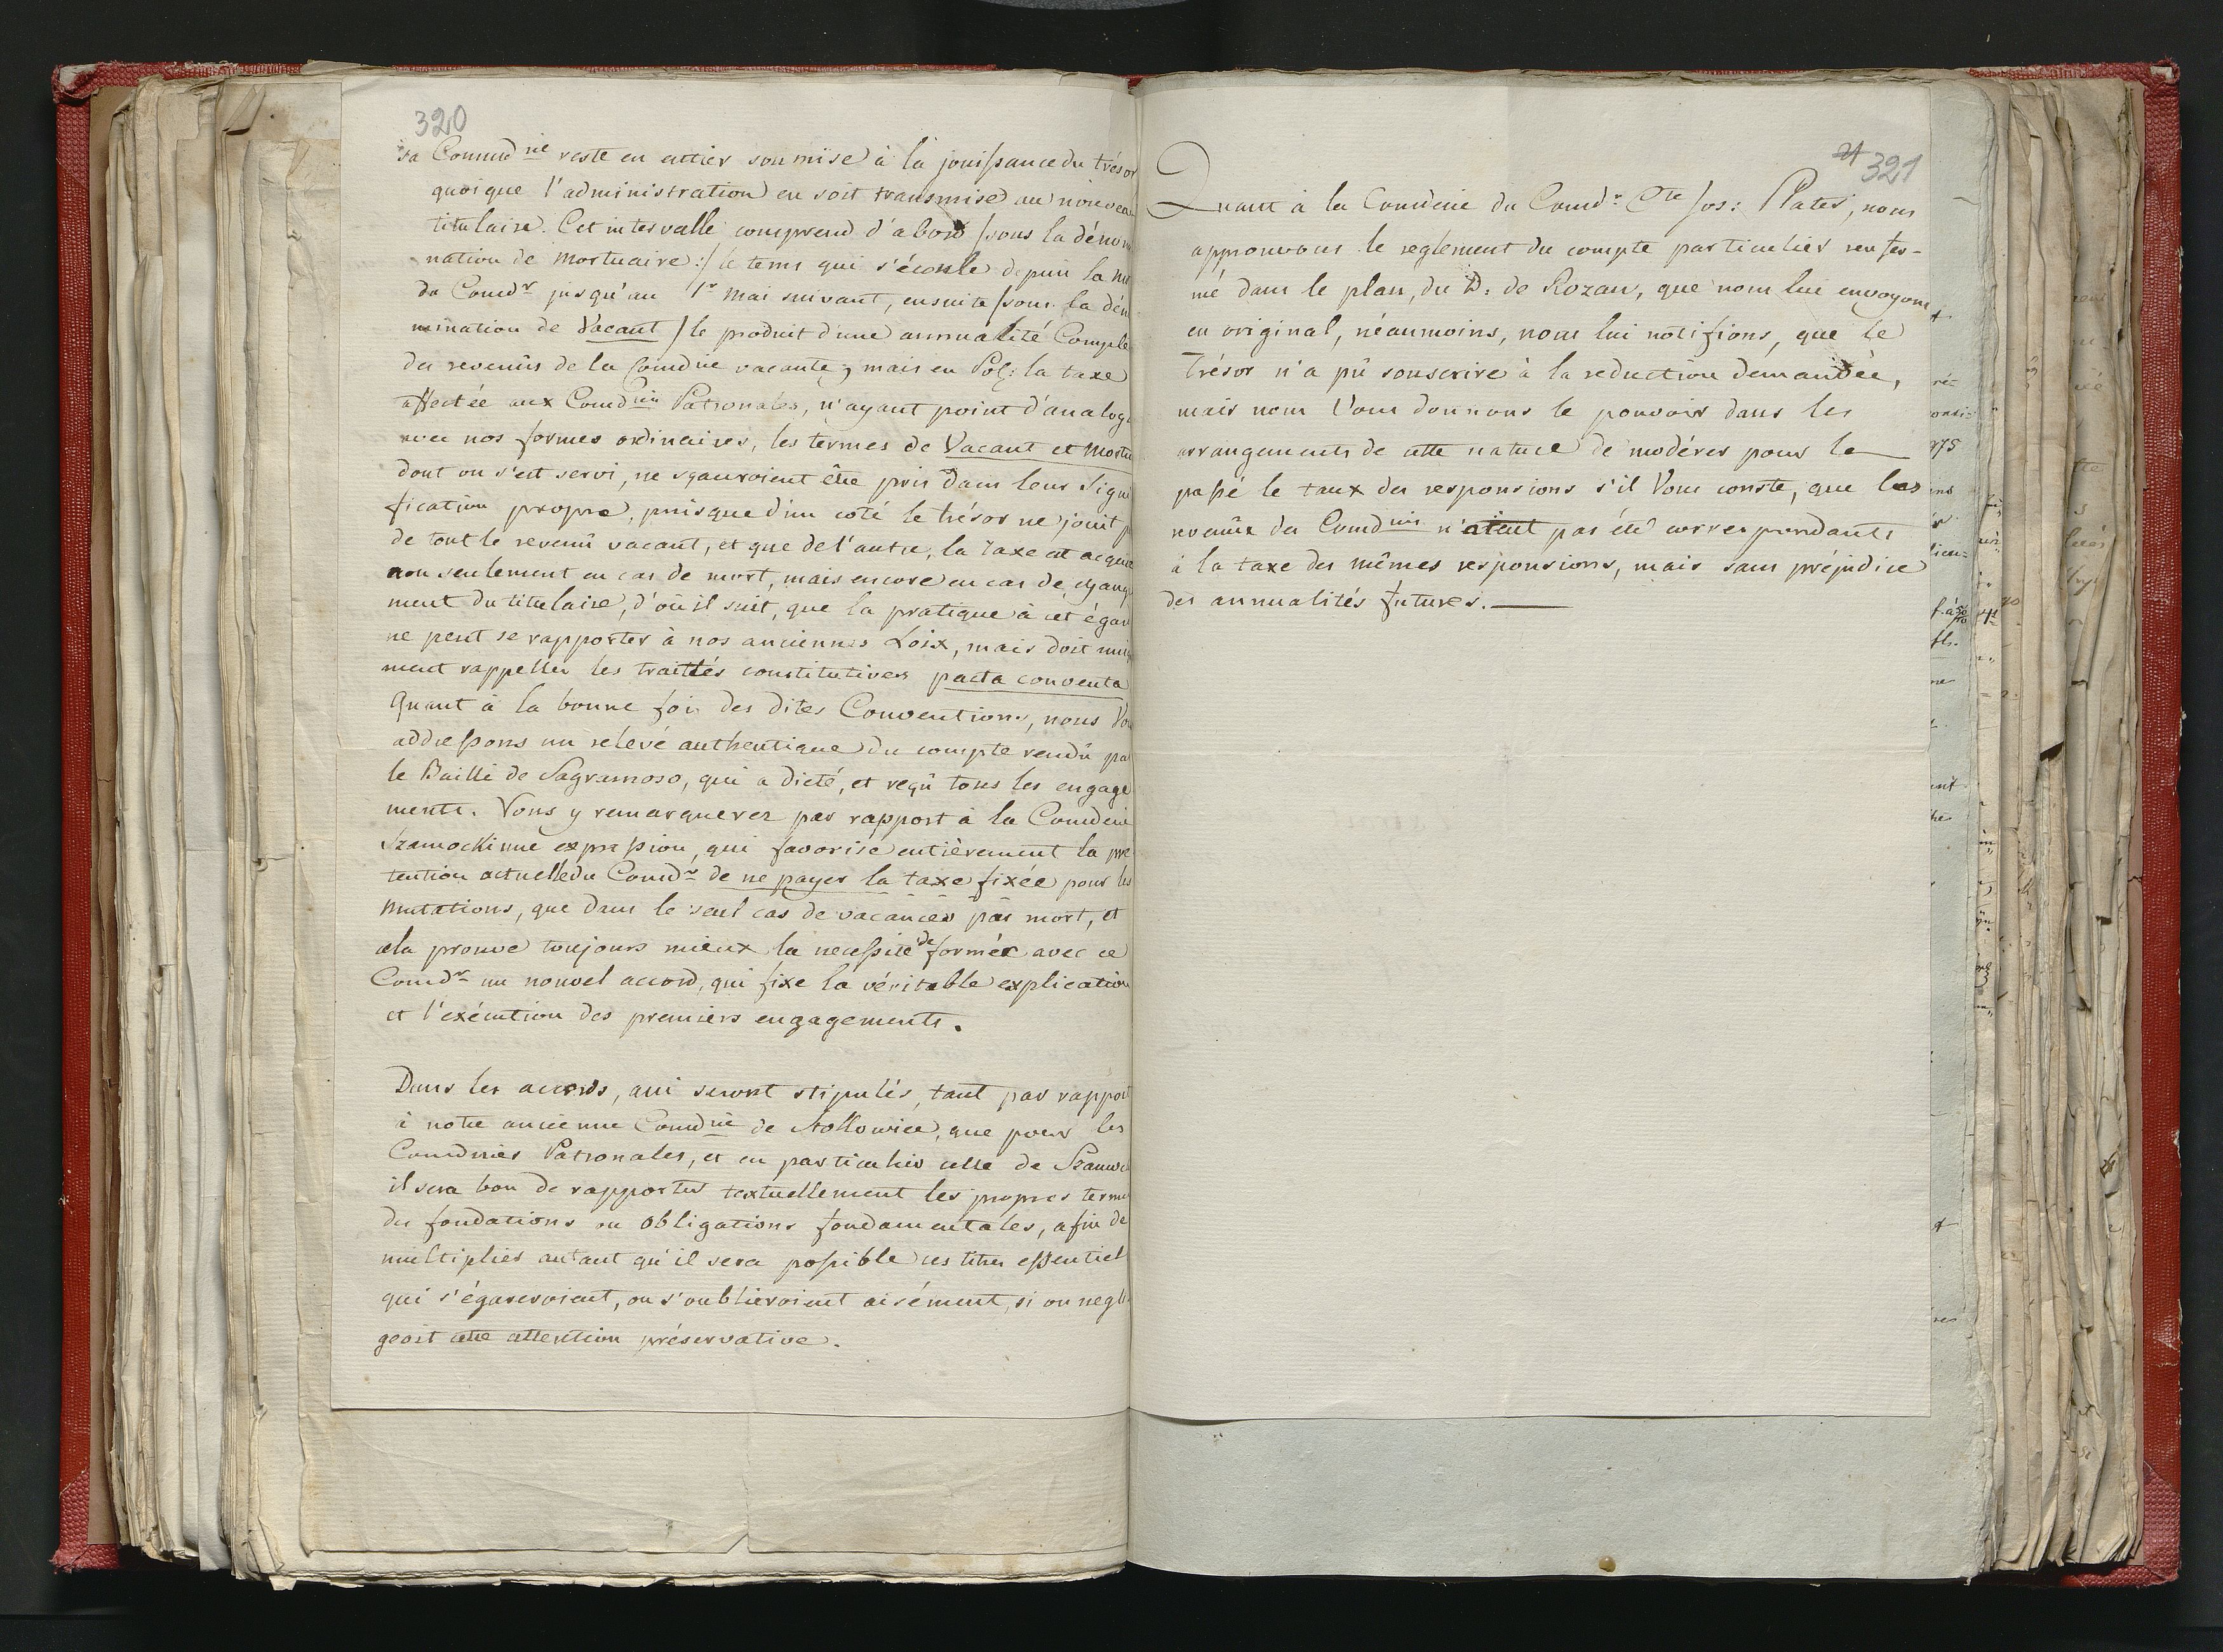 320
sa Comd.rie reste en entier soumise à la jouissance du trésor
quoique l'administration en soit transmise au nouveau
titulaire. Cet intervalle comprend d'abord /sous la dénomi
nation de Mortuaire:/ le tems qui s'écoule depuis la
du Comd.r jusqu'au 1.r Mai suivant, ensuite /sous la dén
mination de Vacant / le produit d'une annualité Complè
des revenûs de la Comdrie vacante, mais en Pol: la taxe
affectée aux Comd.ries Patronales, n'ayant point d'analog
avec nos formes ordinaires, les termes de Vacant et Mortu
dont on s'est servi, ne sçauroient être pris dans leur Signi
fication propre, puisque d'un coté le trésor ne jouit p
de tout le revenû vacant, et que de l'autre, la Taxe est acquise
non seulement en cas de mort, mais encore en cas de change
ment du titulaire, d'où il suit, que la pratique à cet égard
ne peut se rapporter à nos anciennes Loix, mais doit
ment rappeller les traittés constitutives pacta conventa
Quant à la bonne foi des dites Conventions, nous Vou
addressons un relevé authentique du compte rendû pa
le Bailli de Sagramoso, qui a dicté, et reçû tous les engage
ments. Vous y remarquerez par rapport à la Comderie
Szamocki une expression, qui favorise entièrement la pré
tention actuelle du Comd.r de ne payer la taxe fixée pour les
Mutations, que dans le seul cas de vacances par mort, et
cela prouve toujours mieux la necessité de former avec ce
Comd.r un nouvel accord, qui fixe la véritable explication
et l'exécution des premiers engagements.
Dans les accords, qui seront stipulés, tant par rapport
à notre ancienne Comd.rie de Stollowicz, que pour les
Comdries Patronales, et en particulier celle de Szamoc
il sera bon de rapporter textuellement les propres terme
des fondations ou obligations fondamentales, afin de
multiplier autant qu'il sera possible ces titres essentiel
qui s'égareroient, ou s'oublieroient aisément, si on negli
geoit cette attention préservative.
321
Quant à la Comderie du Comd.r Cte Jos: Plater, nous
approuvons le reglement du compte particulier renfer-
mé dans le plan, du D: de Rozan, que nous lui envoyons
en original, néaumoins, nous lui notifions, que le
Trésor n'a pû souscrire à la reduction demandée,
mais nous Vous donnons le pouvoir dans les
arrangements de cette nature de modérer pour le
passé le taux des responsions s'il Vous conste, que les
revenûs des Comd.ries n'aient pas été correspondants
à la taxe des mêmes responsions, mais sans préjudice
des annualités futures.